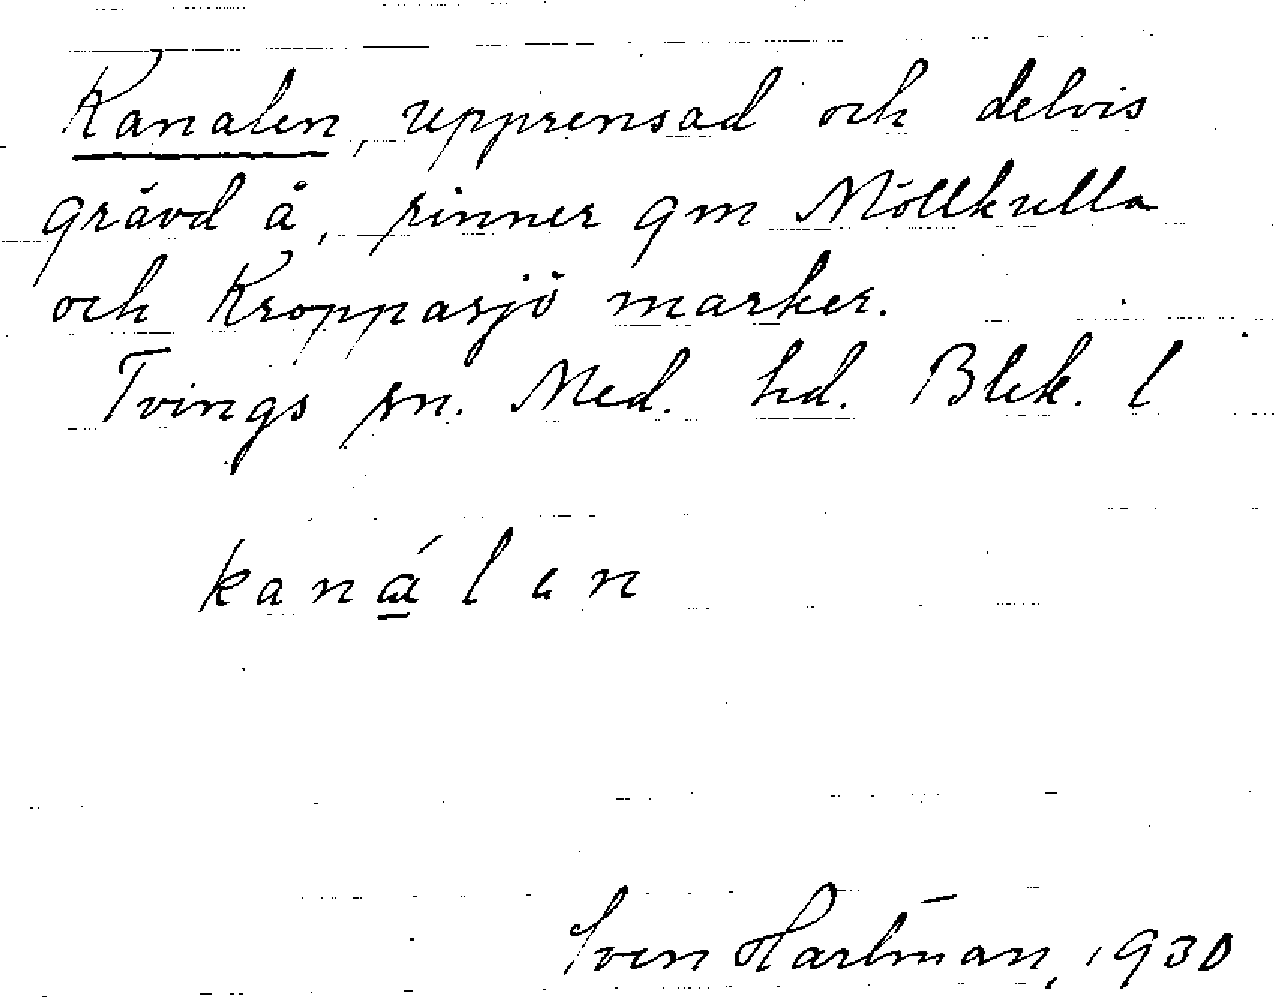 Kanalen, upprensad och delvis
grävd å, rinner gm Möllkulla
och Kroppasjö marker.
Tvings sn. Med. hd. Blek. l
kanálen
Sven Hartman, 1930